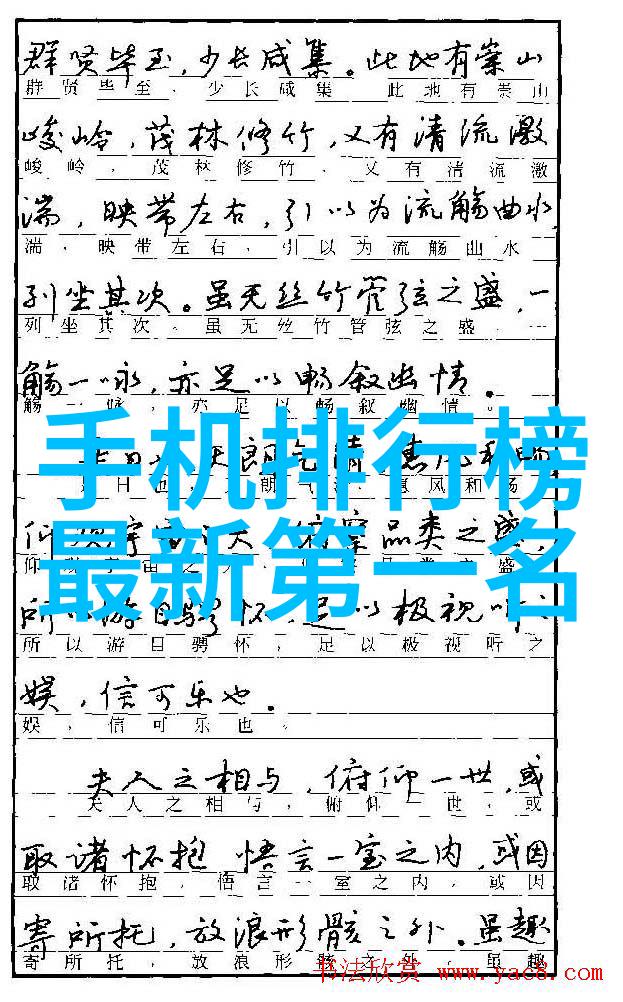 群贤毕至，少长咸集。此地有崇山
群贤毕至，少长咸集。此地有崇山
峻岭，茂林修竹，又有清流激
峻岭，茂林修竹，又有清流激
湍，映带左右，引以为流觞曲水，
湍，映带左右，引以为流觞曲水
列坐其次。虽无丝竹管弦之盛，一
列坐其次。虽无丝竹管弦之盛，一
觞一咏，亦足以畅叙幽情。
觞一咏，亦足以畅叙幽情。
手机排行榜
日也，朗气，惠风和畅
最新第一名
仰 宙之大 品类之盛，
所以游目骋怀，足以极视听之
所以游目骋怀，足以极视听之
娱，信可乐也。
娱，信可乐也。
夫人之相与，俯仰一世，或
夫人之相与，俯仰一世，或
取诸怀抱 悟言一室之内，或因
取诸怀抱，悟言一室之内，或因
寄所托，放浪形骸之外。虽趣
寄所托，放浪形骸之外。虽趣
书法欣赏 www.yac8.com